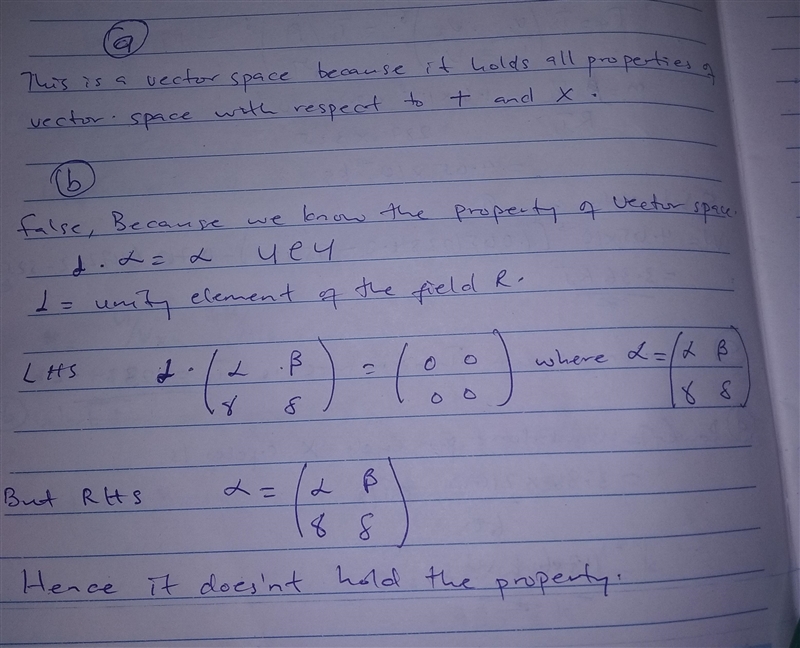 (a)
This is a vector space because it holds all properties of
vector. space with respect to + and X .
(b)
false, Because we know the property of vector space.
1 . α = α ∀ e V
1 = unity element of the field R.
LHS 1 . (α .β) = (0 0) where α = (α β)
(γ δ) (0 0) (γ δ)
But RHS α = (α β)
(γ δ)
Hence it does'nt hold the property.